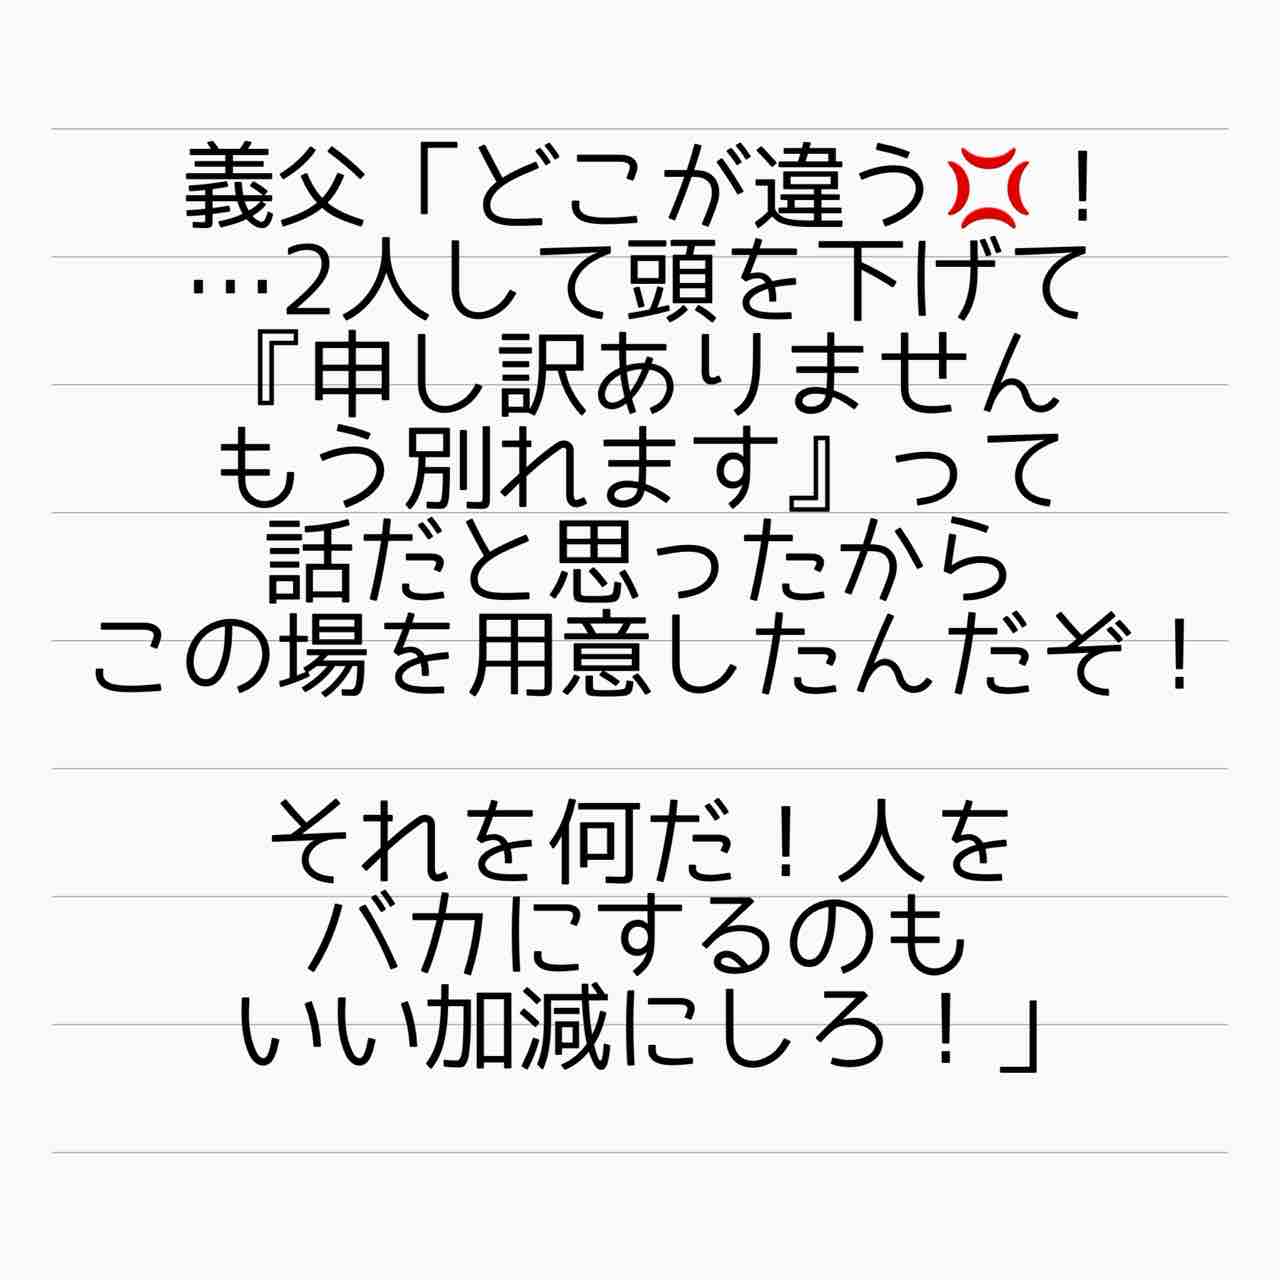 義父「どこが違う💢！
…2人して頭を下げて
『申し訳ありません
もう別れます』って
話だと思ったから
この場を用意したんだぞ！
それを何だ！人を
バカにするのも
いい加減にしろ！」